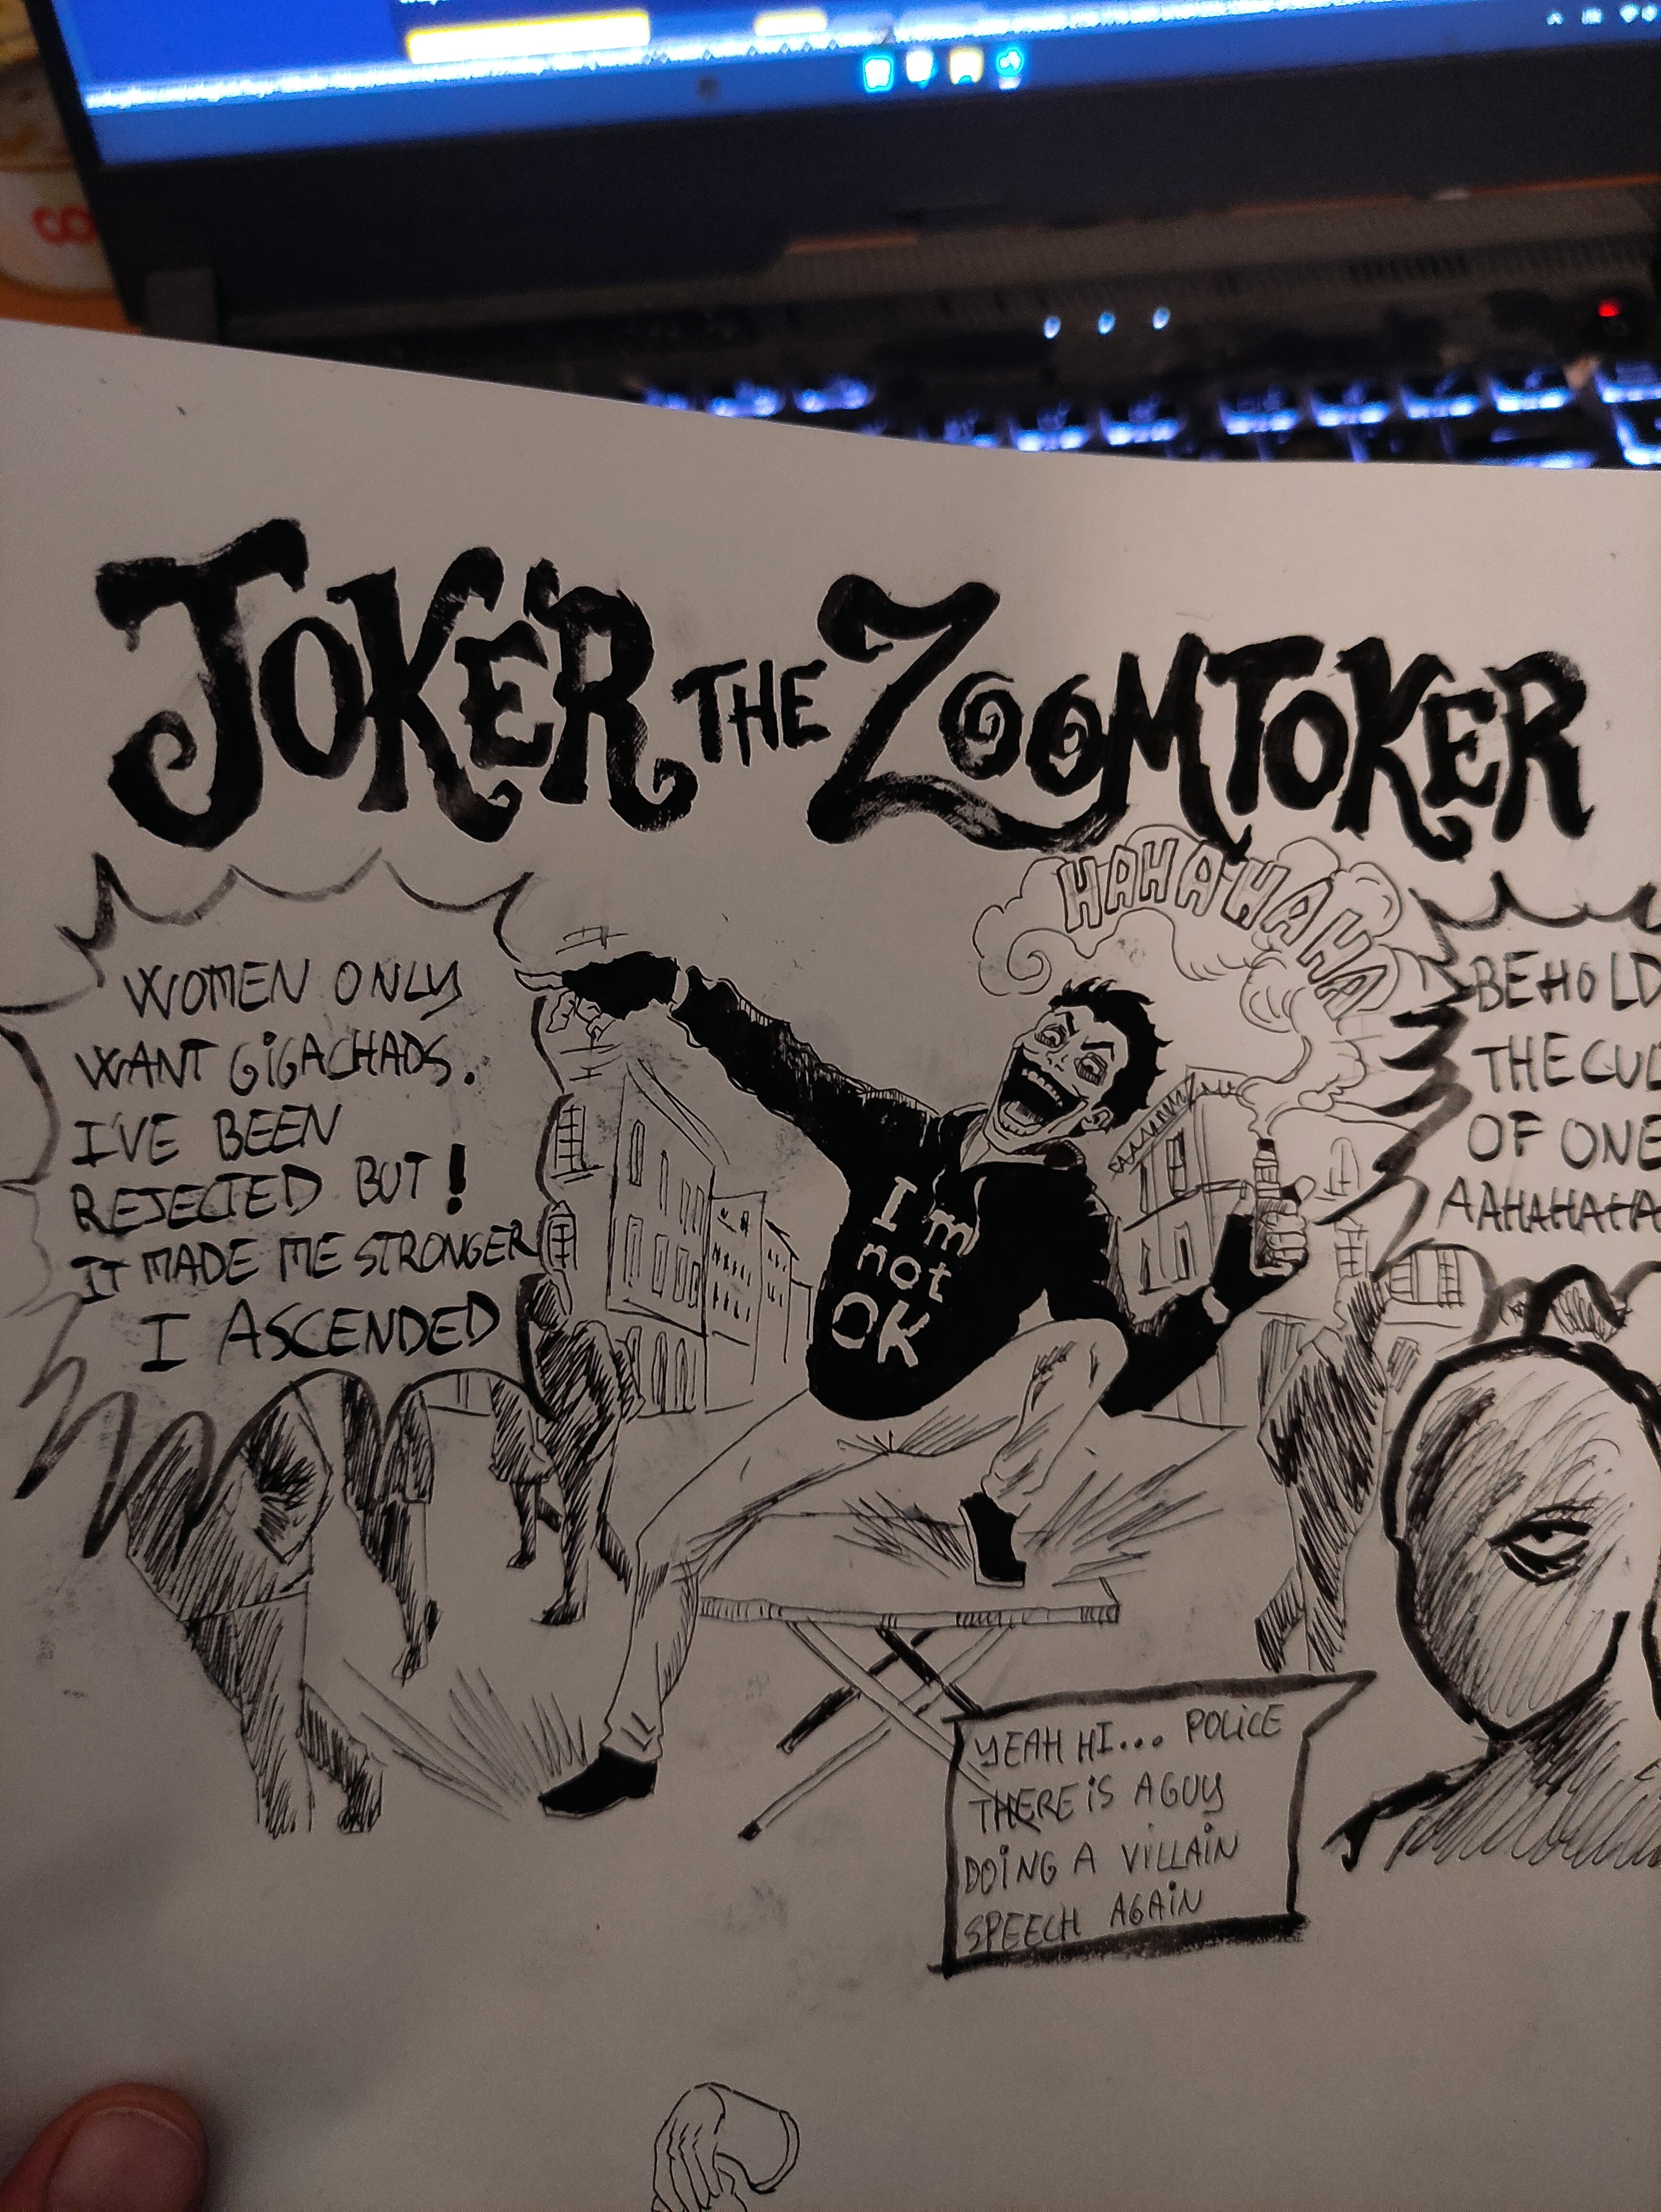 JOKER THE ZOOMTOKER
HAHAHAHAHA
WOMEN ONLY
WANT GIGACHADS.
I'VE BEEN
REJECTED BUT!
IT MADE ME STRONGER
I ASCENDED
I'm
not
OK
BEHOLD
THE CUL
OF ONE
AAHAHAHA
YEAH HI... POLICE
THERE IS A GUY
DOING A VILLAIN
SPEECH AGAIN